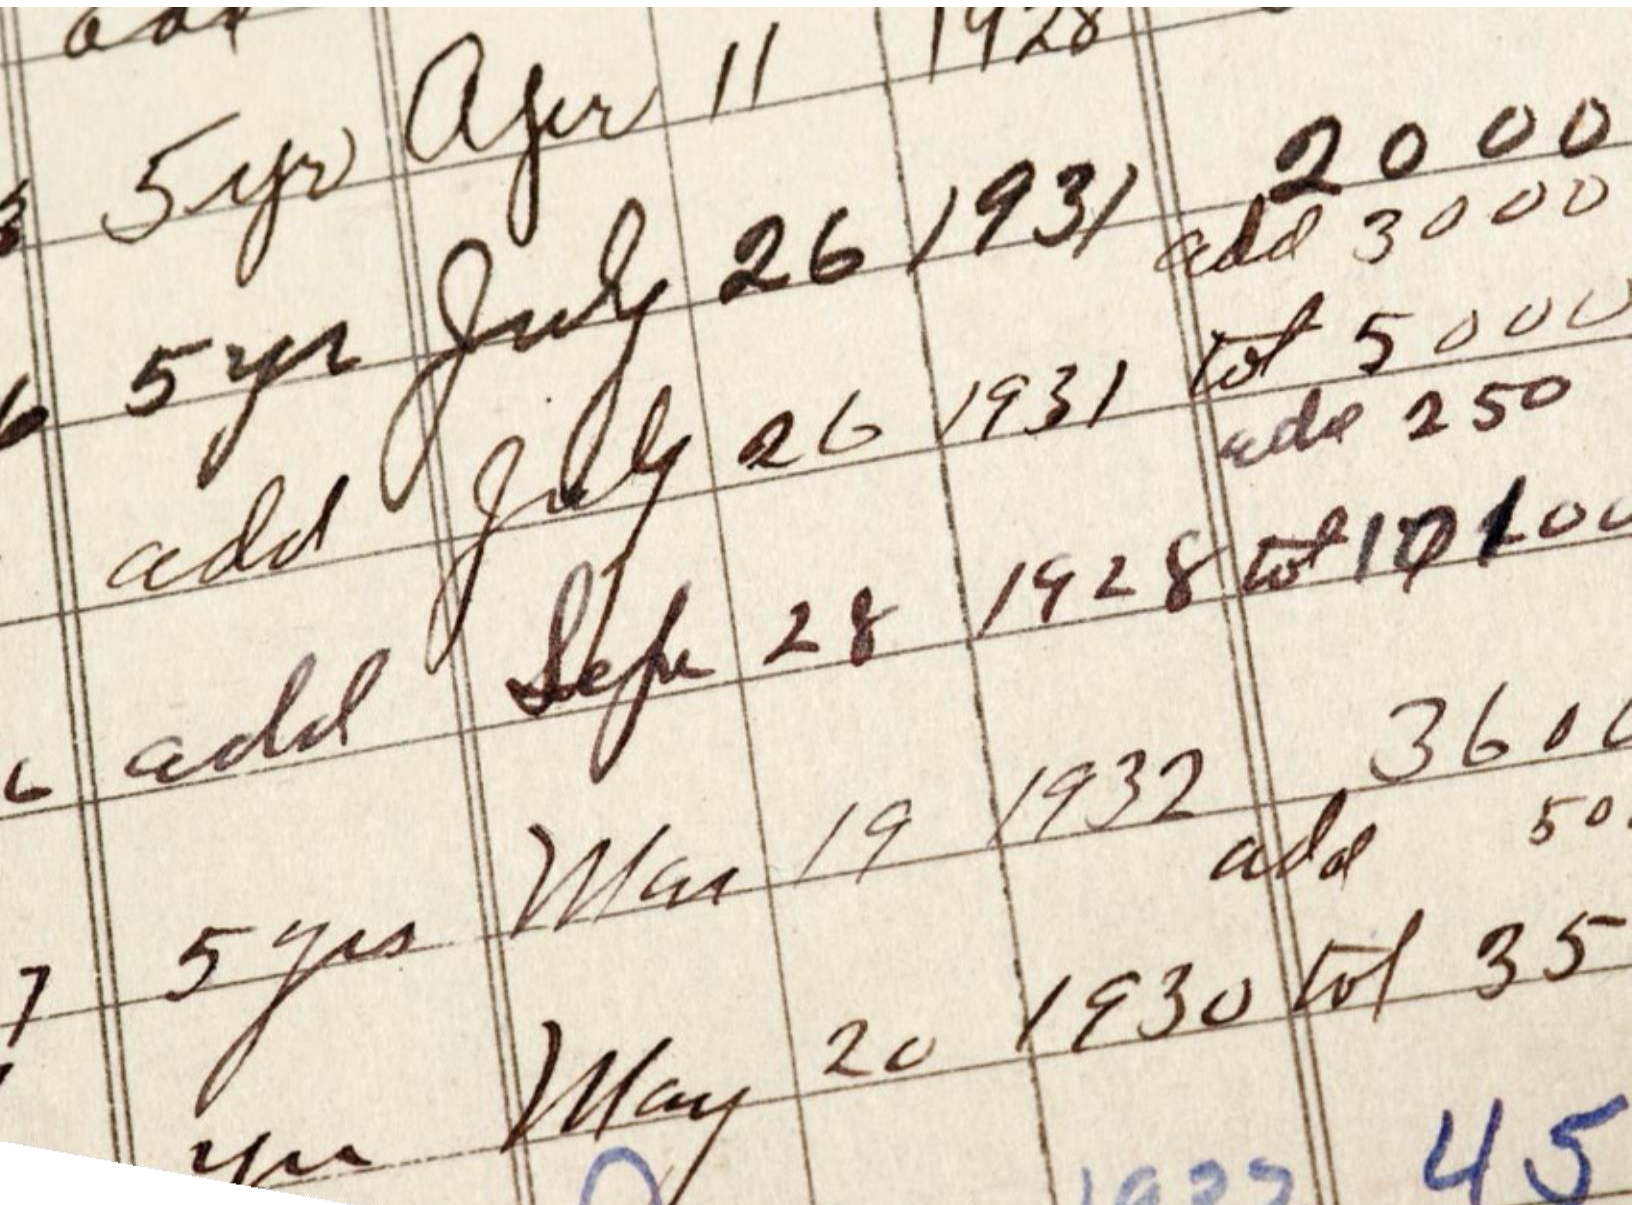 add
5yr Apr 11 1928
5yr July 26 1931 2000
add 3000
add July 26 1931 tot 5000
add 250
add Sept 28 1928 tot
5 yrs Mar 19 1932 3600
add 50
yr May 20 1930 tot 35
45